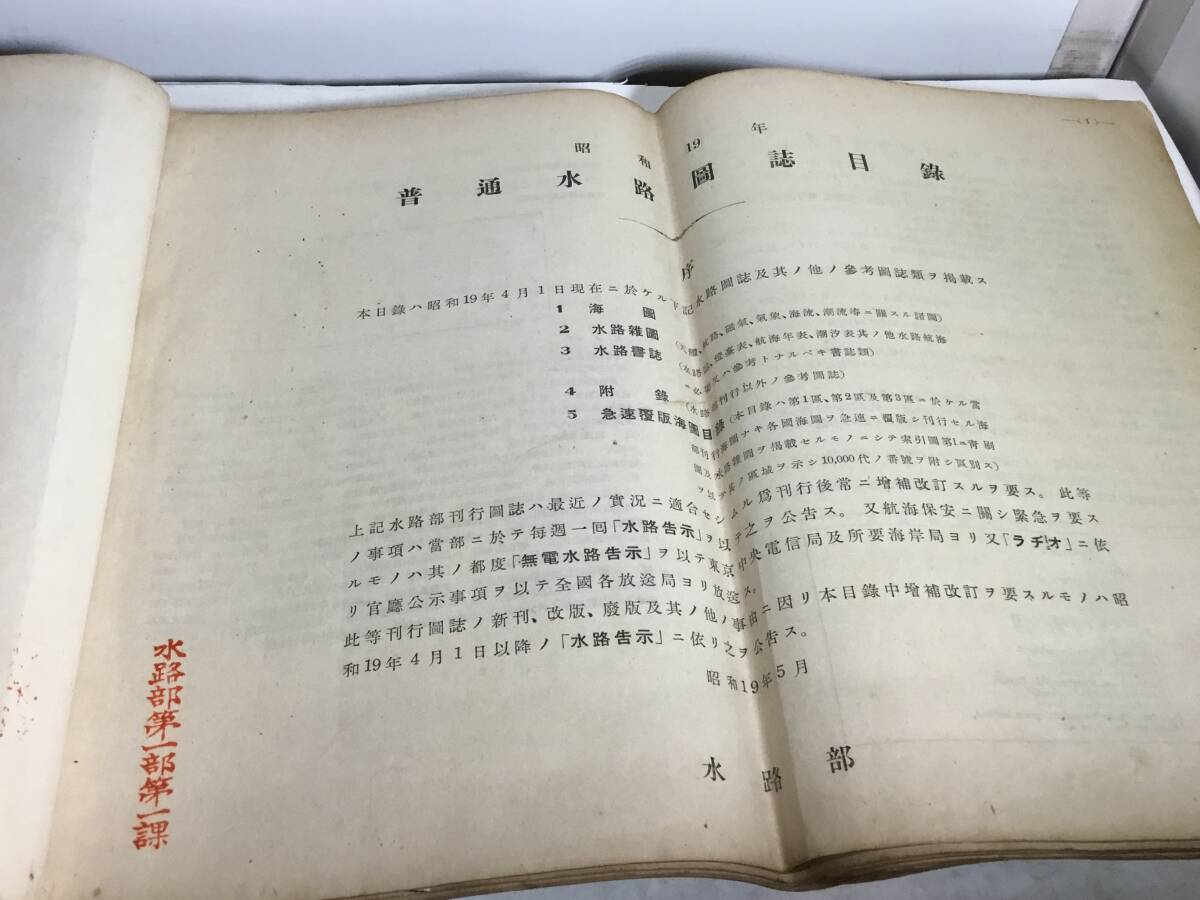 —(1)—
昭和19年
普通水路圖誌目錄
序
本目錄ハ昭和19年4月1日現在ニ於ケル下記水路圖誌及其ノ他ノ參考圖誌類ヲ揭載ス
1 海圖
2 水路雜圖 路、磁氣、氣象、海流、潮流等ニ關スル諸圖)
3 水路書誌 (水路誌、燈臺表、航海年表、潮汐表其ノ他水路航海
ニ必要又ハ參考トナルベキ書誌類)
4 附錄 (水路部刊行以外ノ參考圖誌)
5 急速覆版海圖目錄 (本目錄ハ第1區、第2區及第3區ニ於ケル當
部刊行海圖ナキ各國海圖ヲ急速ニ覆版シ刊行セル海
圖及水路雜圖ヲ揭載セルモノニシテ索引圖第1ニ靑刷
ヲ以テ其ノ區域ヲ示シ10,000代ノ番號ヲ附シ區別ス)
上記水路部刊行圖誌ハ最近ノ實況ニ適合セシムル爲刊行後常ニ增補改訂スルヲ要ス。此等
ノ事項ハ當部ニ於テ每週一回「水路告示」ヲ以テ之ヲ公告ス。又航海保安ニ關シ緊急ヲ要ス
ルモノハ其ノ都度「無電水路告示」ヲ以テ東京中央電信局及所要海岸局ヨリ又「ラヂオ」ニ依
リ官廳公示事項ヲ以テ全國各放送局ヨリ放送ス。
此等刊行圖誌ノ新刊、改版、廢版及其ノ他ノ事由ニ因リ本目錄中增補改訂ヲ要スルモノハ昭
和19年4月1日以降ノ「水路告示」ニ依リ之ヲ公告ス。
昭和19年5月
水路部
水路部第一部第一課